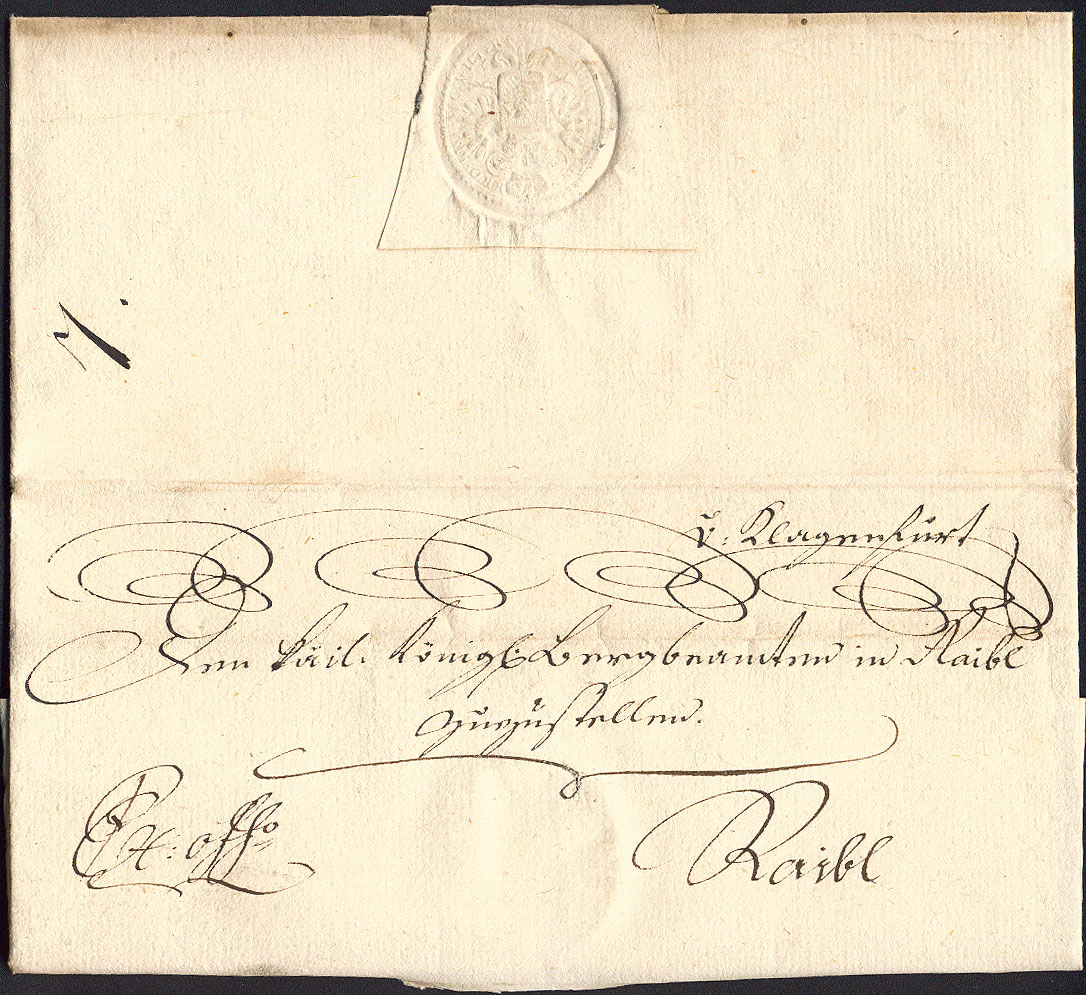 v: Klagenfurt
Den kaÿl. Königl: Bergbeamten in Raibl
zuzustellen.
Ex: offo
Raibl